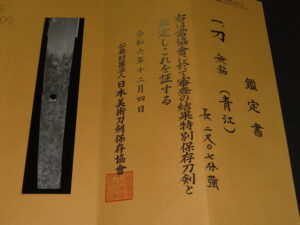 鑑定書
一、刀 無銘（青江）
長 二尺〇七分強
右は當協會に於て審査の結果特別保存刀剣と
鑑定しこれを証する
令和六年十二月四日
公益財団法人日本美術刀剣保存協會